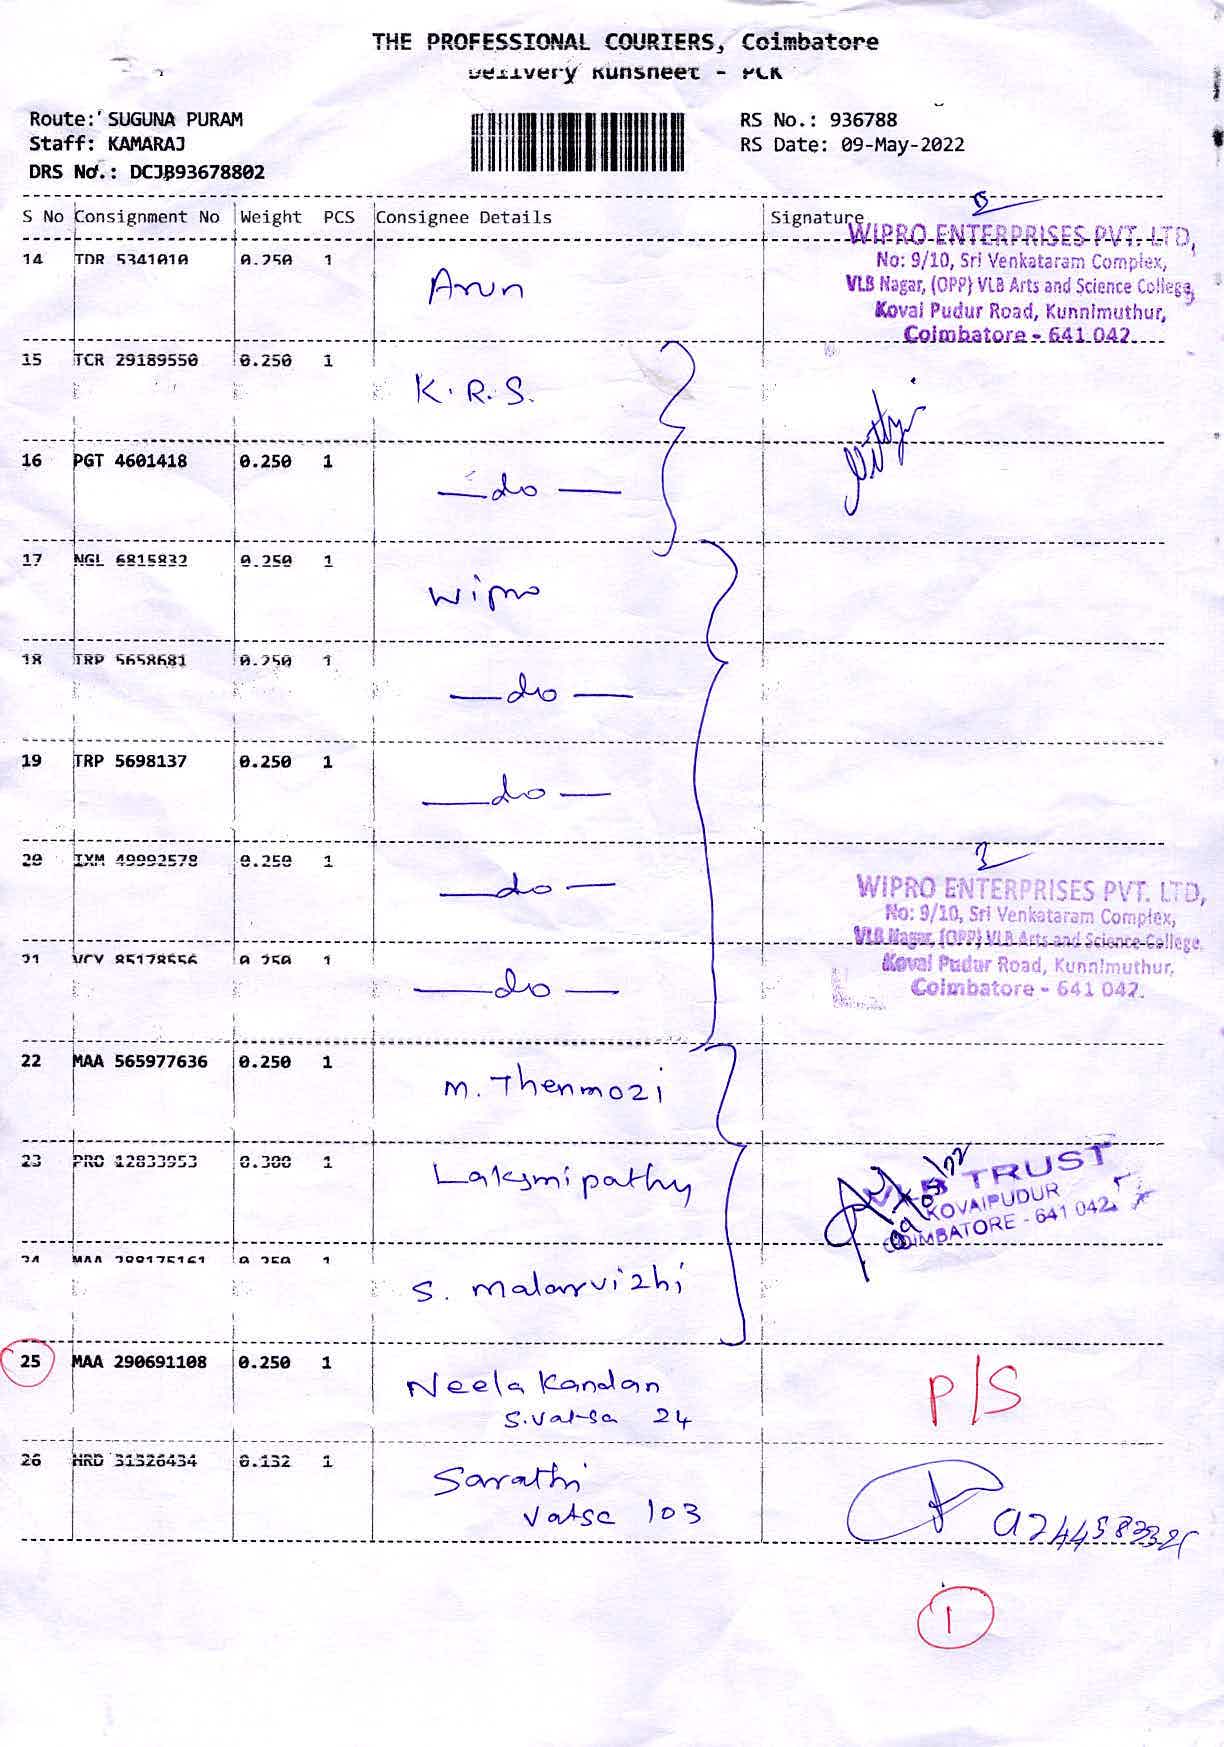 THE PROFESSIONAL COURIERS, Coimbatore
Delivery Runsheet - PCK
Route: SUGUNA PURAM
Staff: KAMARAJ
DRS No.: DCJB93678802
RS No.: 936788
RS Date: 09-May-2022
S No Consignment No Weight PCS Consignee Details Signature
WIPRO ENTERPRISES PVT. LTD,
No: 9/10, Sri Venkataram Complex,
VLB Nagar, (OPP) VLB Arts and Science College,
Kovai Pudur Road, Kunnimuthur,
Coimbatore - 641 042.
14 TDR 5341010 0.250 1 Arun
15 TCR 29189550 0.250 1 K.R.S.
16 PGT 4601418 0.250 1 —do—
17 NGL 6815832 0.250 1 Wipro
18 TRP 5658681 0.250 1 —do—
19 TRP 5698137 0.250 1 —do—
20 IXM 49992578 0.250 1 —do—
WIPRO ENTERPRISES PVT. LTD,
No: 9/10, Sri Venkataram Complex,
VLB Nagar, (OPP) VLB Arts and Science College,
Kovai Pudur Road, Kunnimuthur,
Coimbatore - 641 042.
21 VCY 85178556 0.250 1 —do—
22 MAA 565977636 0.250 1 M. Thenmozi
23 PRO 12833953 0.300 1 Laksmipathy
VLB TRUST
KOVAIPUDUR
COIMBATORE - 641 042.
09/05/22
24 MAA 0.250 1 S. Malarvizhi
25 MAA 290691108 0.250 1 Neela Kandan P/S
S.Vatsa 24
26 HRD 31326434 0.132 1 Sarathi
Vatsa 103
1